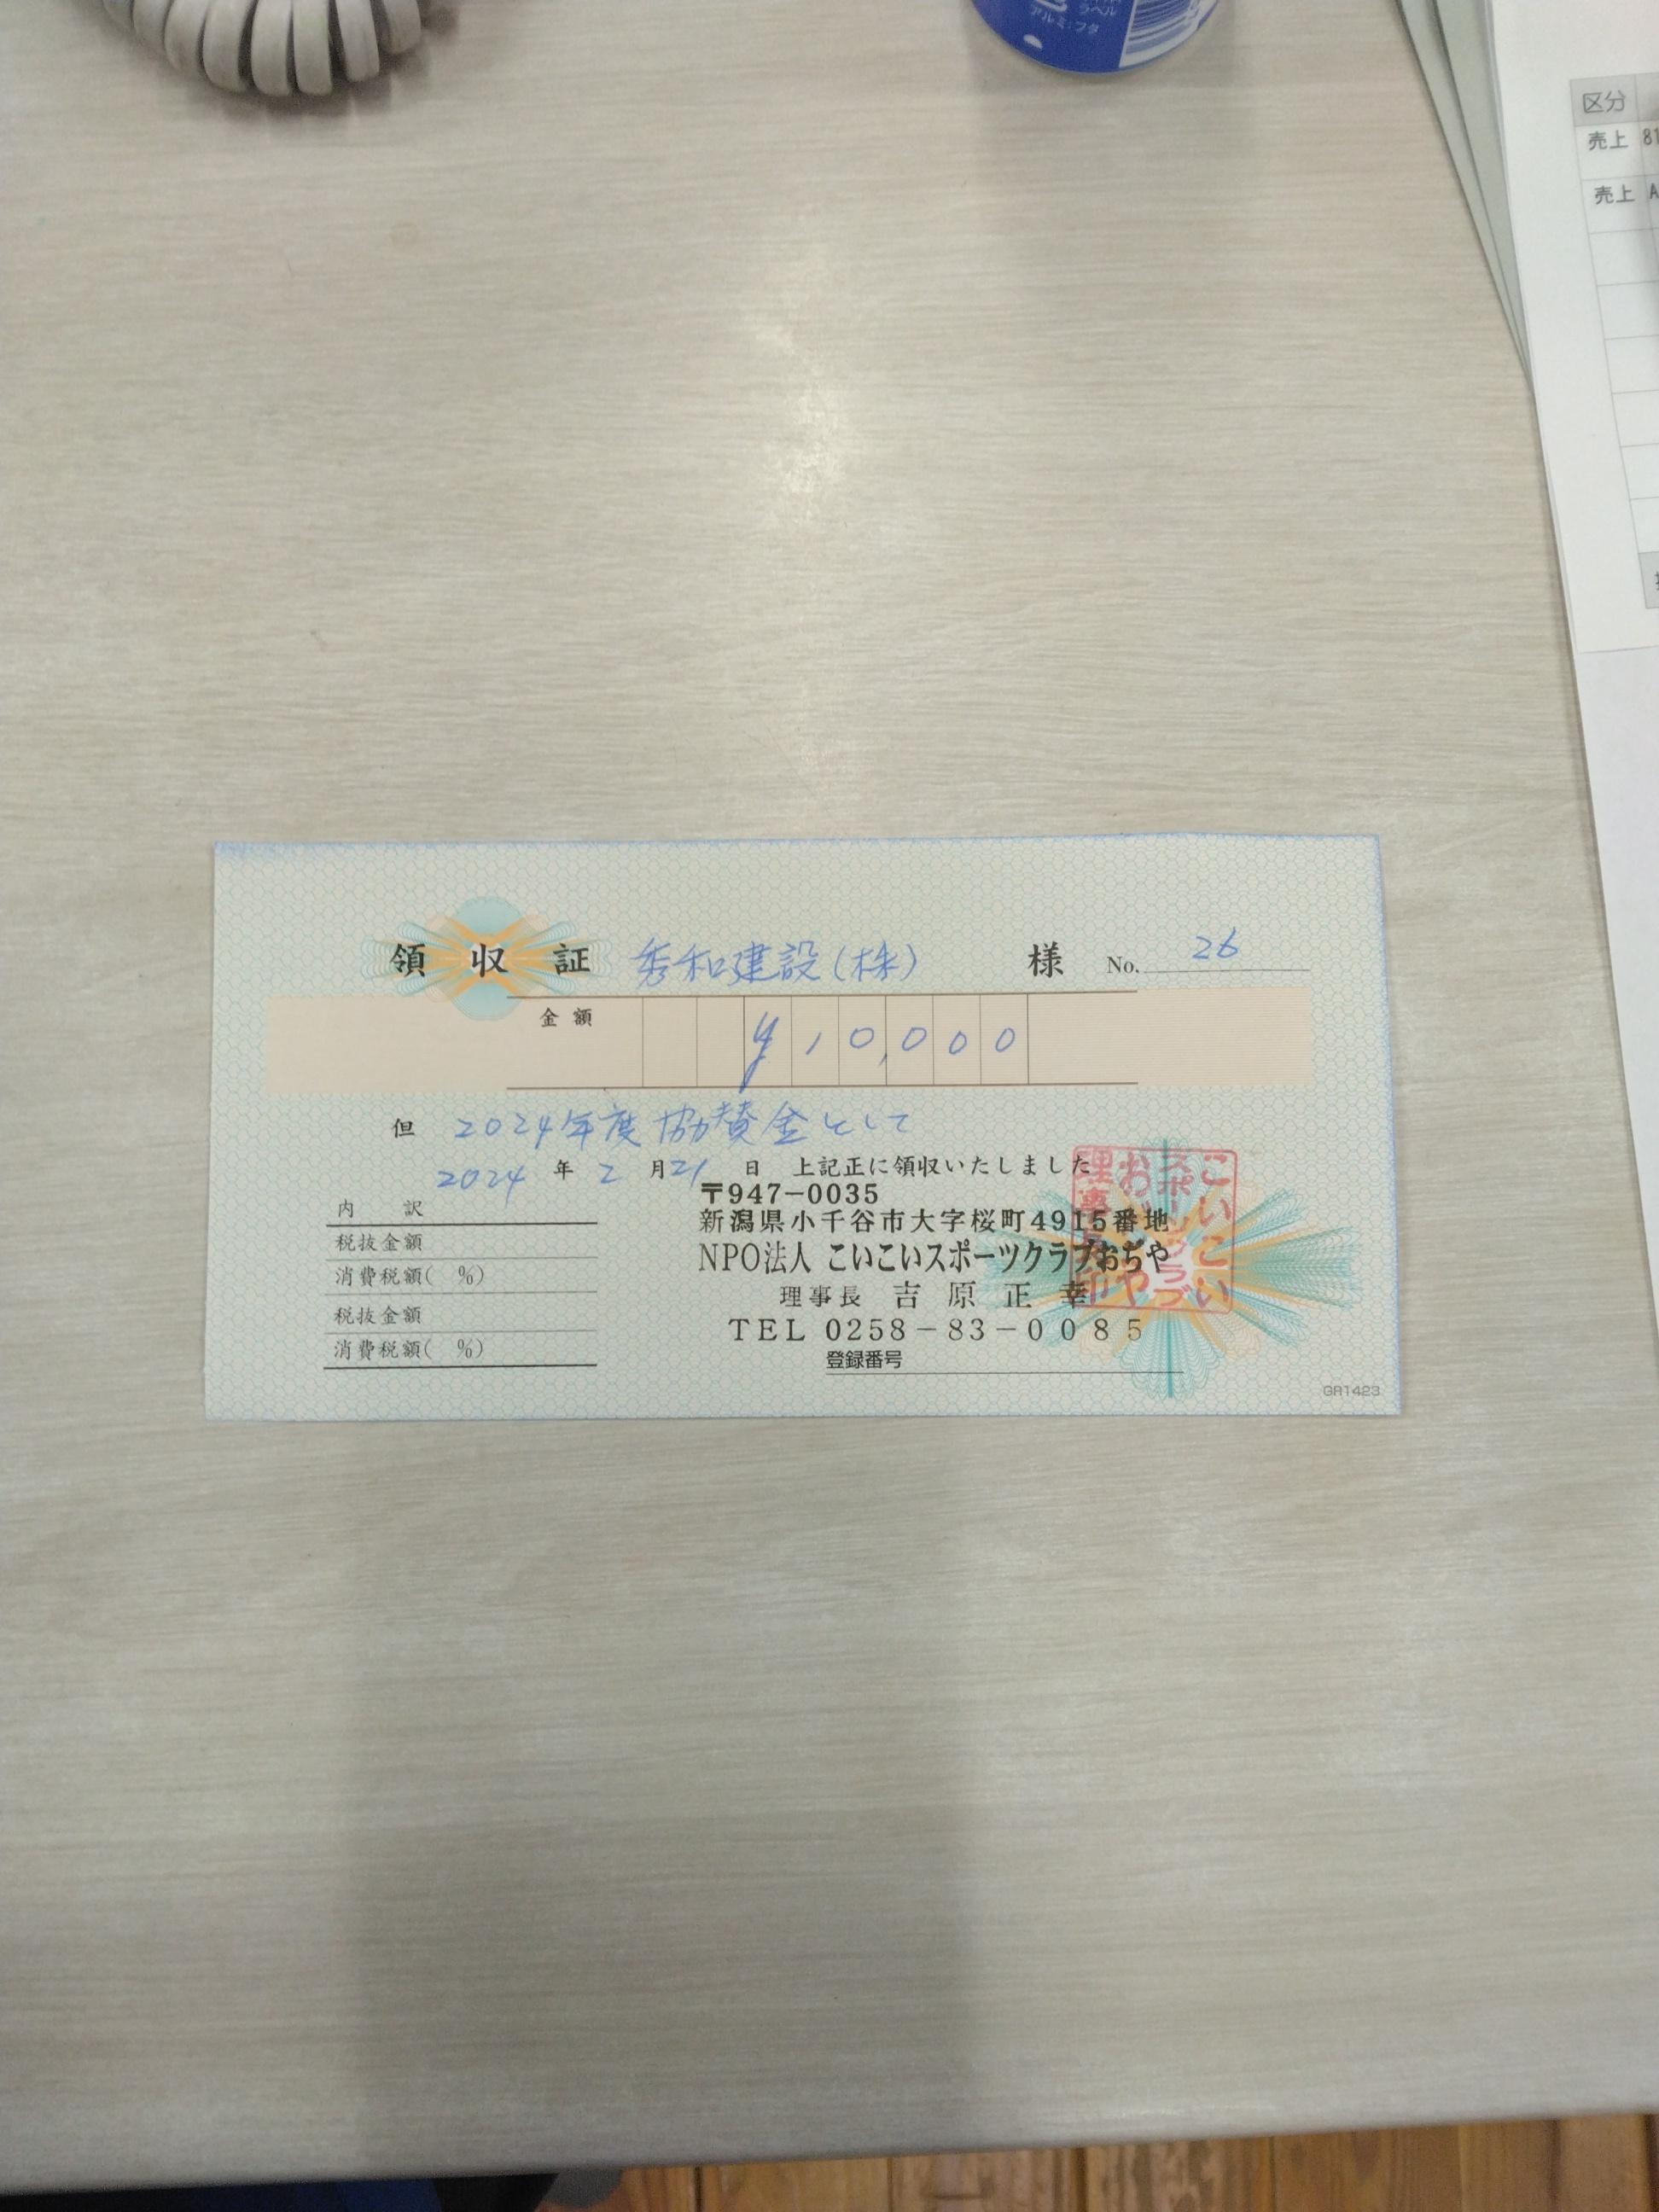 ラベル
アルミ:フタ
区分
売上 81
売上 A
領収証 秀和建設(株) 様 No. 26
金額 ¥10,000
但 2024年度協賛金として
2024年2月21日 上記正に領収いたしました
〒947-0035
新潟県小千谷市大字桜町4915番地
NPO法人 こいこいスポーツクラブおぢや
理事長 吉原正幸
TEL 0258-83-0085
登録番号
内訳
税抜金額
消費税額( %)
税抜金額
消費税額( %)
こいこい
スポーツクラブ
おぢや
理事長印
GR1423